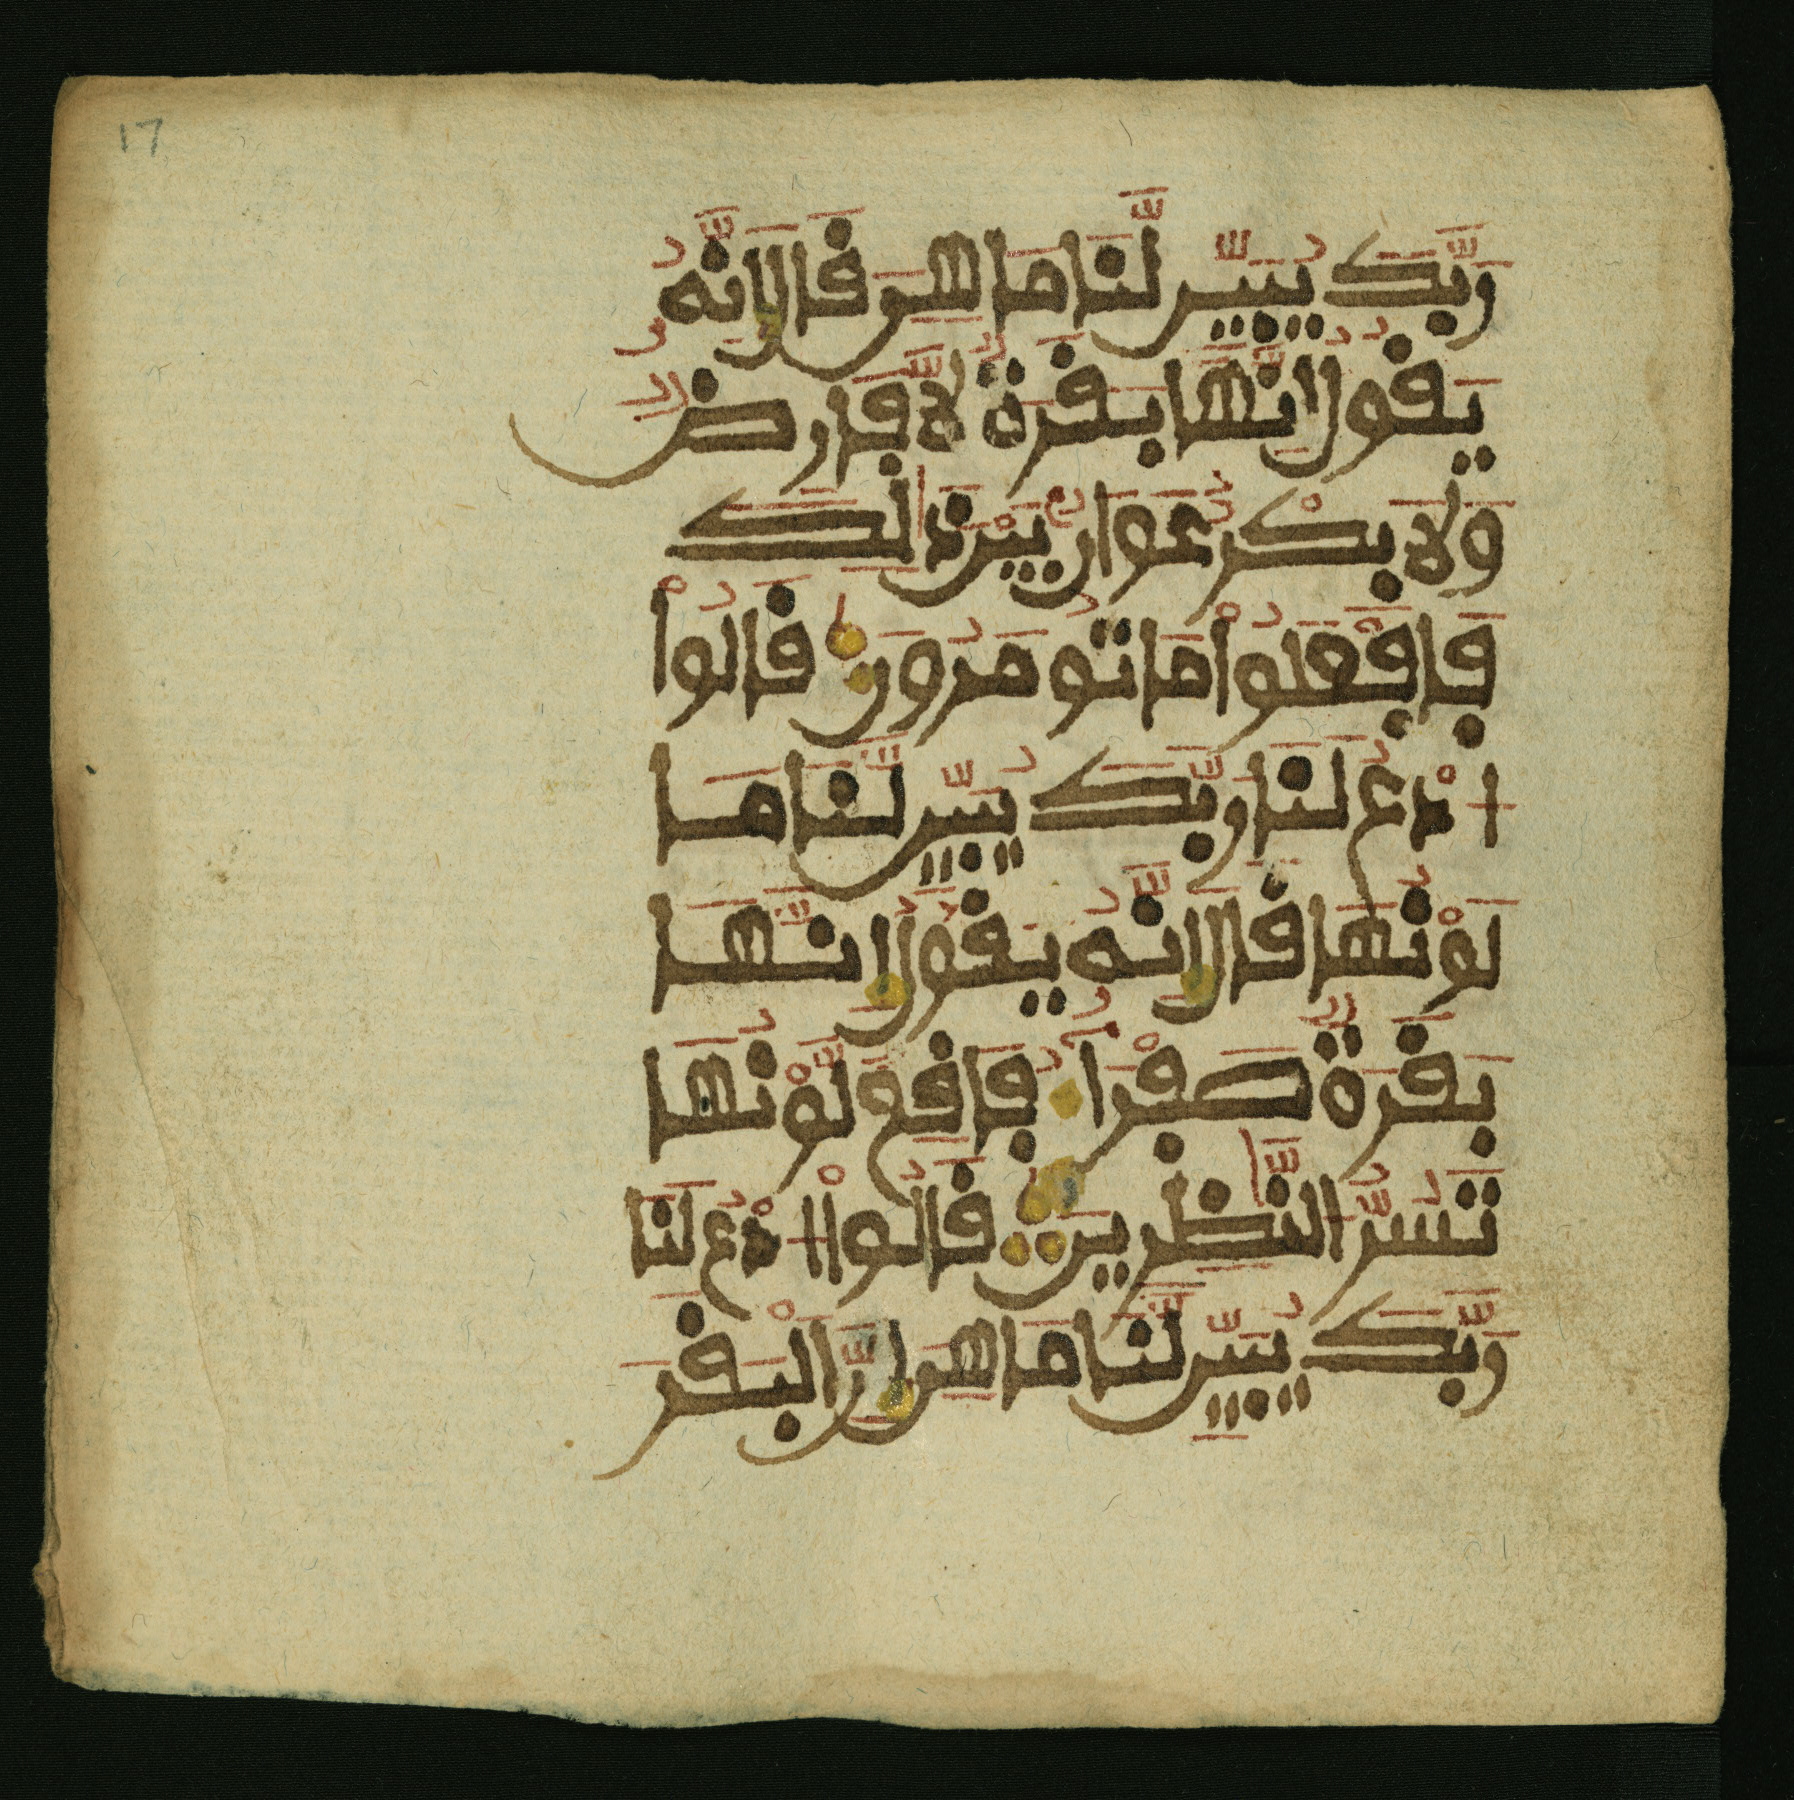 17
رَبَّكَ يُبَيِّن لَّنَا مَا هِىَ قَالَ إِنَّهُۥ
يَقُولُ إِنَّهَا بَقَرَةٌ لَّا فَارِضٌ
وَلَا بِكْرٌ عَوَانٌۢ بَيْنَ ذَٰلِكَ
فَافْعَلُوا۟ مَا تُومَرُونَ قَالُوا۟
ادْعُ لَنَا رَبَّكَ يُبَيِّن لَّنَا مَا
لَوْنُهَا قَالَ إِنَّهُۥ يَقُولُ إِنَّهَا
بَقَرَةٌ صَفْرَآءُ فَاقِعٌ لَّوْنُهَا
تَسُرُّ النَّٰظِرِينَ قَالُوا۟ ادْعُ لَنَا
رَبَّكَ يُبَيِّن لَّنَا مَا هِىَ إِنَّ الْبَقَرَ